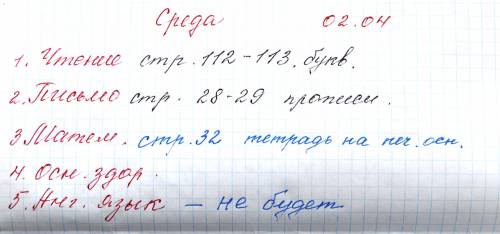 Среда 02.04
1. Чтение стр. 112-113. букв.
2. Письмо стр. 28-29 прописи.
3 Матем. стр. 32 тетрадь на печ. осн.
4. Осн. здор.
5. Анг. язык – не будет